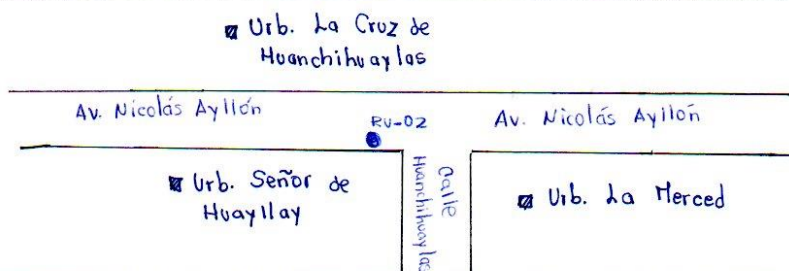 Urb. La Cruz de
Huanchihuaylas
Av. Nicolás Ayllón
RU-02
Av. Nicolás Ayllón
Urb. Señor de
Huayllay
Calle
Huanchihuaylas
Urb. La Merced